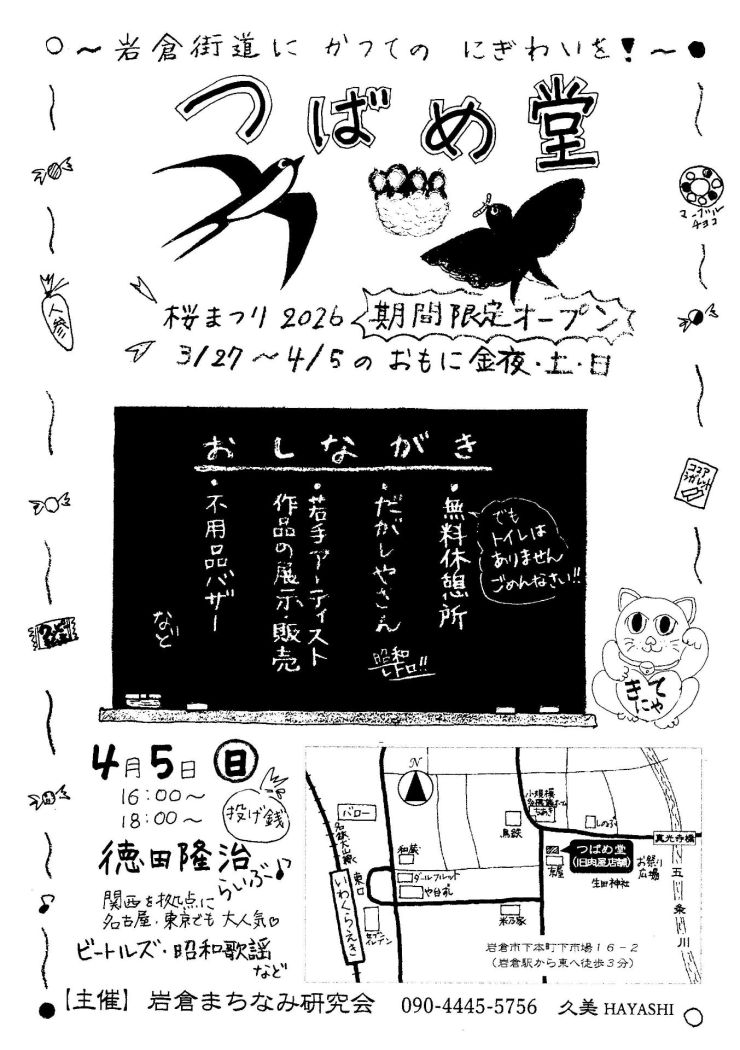 ～岩倉街道に かつての にぎわいを！～
つばめ堂
マーブルチョコ
人参
桜まつり 2026 期間限定オープン
3/27～4/5の おもに 金夜・土・日
ココアシガレット
おしながき
・無料休憩所
でも
トイレは
ありません
ごめんなさい!!
・だがしやさん
昭和
レトロ!!
・若手アーティスト
作品の展示・販売
・不用品バザー
など
きて
にゃ
4月5日 日
16:00～
18:00～
投げ銭
徳田隆治
らいぶ♪
関西を拠点に
名古屋・東京でも 大人気♡
ビートルズ・昭和歌謡
など
N
バロー
名鉄犬山線
いわくらえき
東口
和蔵
ダールフルット
や台ずし
セブンイレブン
鳥鉄
米乃家
しのぶ
つばめ堂
(旧肉屋店舗)
生田神社
お祭り
広場
真光寺橋
五条川
岩倉市下本町下市場16-2
(岩倉駅から東へ徒歩3分)
【主催】 岩倉まちなみ研究会 090-4445-5756 久美 HAYASHI